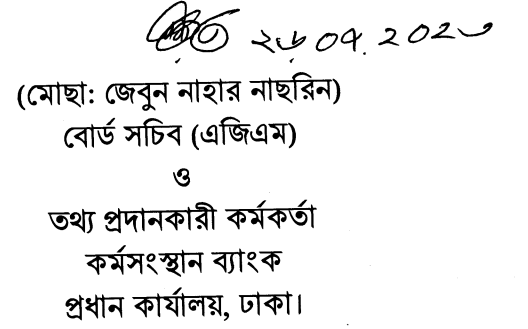 ২৬.০৭.২০২৩
(মোছা: জেবুন নাহার নাছরিন)
বোর্ড সচিব (এজিএম)
ও
তথ্য প্রদানকারী কর্মকর্তা
কর্মসংস্থান ব্যাংক
প্রধান কার্যালয়, ঢাকা।